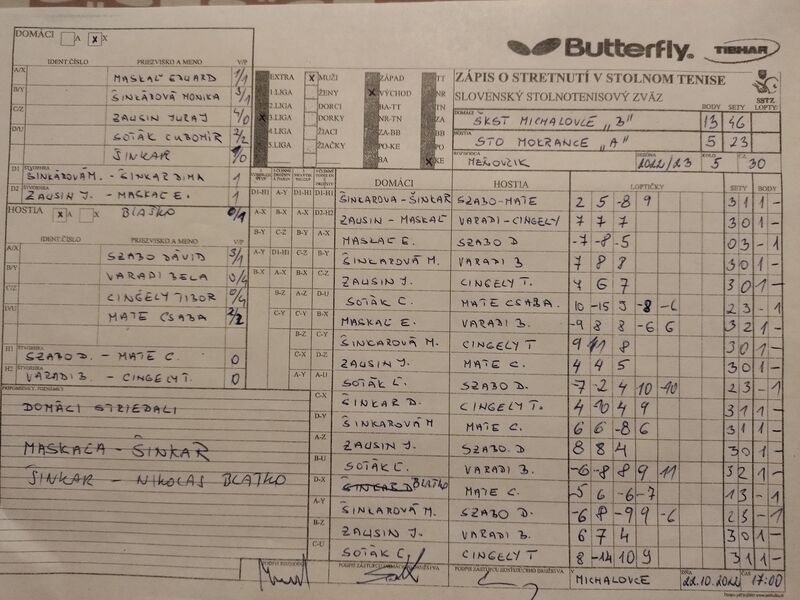 DOMÁCI A X X
Butterfly. TIBHAR
IDENT.ČÍSLO PRIEZVISKO A MENO V/P
A/X MASKAĽ EDUARD 1/1
B/Y ŠINKÁROVÁ MONIKA 3/1
C/Z ZAUSIN JURAJ 4/0
D/U SOTÁK ĽUBOMÍR 2/2
ŠINKAR 1/0
EXTRA X MUŽI ZÁPAD TT
1.LIGA ŽENY X VÝCHOD NR
2.LIGA DORCI BA-TT TN
X 3.LIGA DORKY NR-TN ZA
4.LIGA ŽIACI ZA-BB BB
5.LIGA ŽIAČKY PO-KE PO
BA X KE
ZÁPIS O STRETNUTÍ V STOLNOM TENISE
SLOVENSKÝ STOLNOTENISOVÝ ZVÄZ
SSTZ
BODY SETY LOPTY:
DOMÁCI SKST MICHALOVCE "B" 13 46
HOSTIA STO MOKRANCE "A" 5 23
ROZHODCA MEŇOVČIK SEZÓNA 2022/23 KOLO 5 Č.Z. 30
D1 ŠTVORHRA ŠINKÁROVÁ M. - ŠINKAR DIMA 1
D2 ŠTVORHRA ZAUSIN J. - MASKAĽ E. 1
HOSTIA X X BLAŤKO 0/1
IDENT.ČÍSLO PRIEZVISKO A MENO V/P
A/X SZABO DÁVID 3/1
B/Y VARADI BELA 0/4
C/Z CINGELY TIBOR 0/4
D/U MATE CSABA 2/2
H1 ŠTVORHRA SZABO D. - MATE C. 0
H2 ŠTVORHRA VARADI B. - CINGELY T. 0
PRIPOMIENKY, POZNÁMKY
DOMÁCI STRIEDALI
MASKAĽA - ŠINKAŘ
ŠINKAR - NIKOLAS BLAŤKO
DOMÁCI HOSTIA LOPTIČKY SETY BODY
ŠINKÁROVA - ŠINKAR SZABO-MATE 2 5 -8 9 3 1 1 -
ZAUSIN - MASKAĽ VARADI-CINGELY 7 7 7 3 0 1 -
MASKAĽ E. SZABO D -7 -8 -5 0 3 - 1
ŠINKÁROVÁ M. VARADI B 7 8 8 3 0 1 -
ZAUSIN J. CINGELY T. 4 6 7 3 0 1 -
SOTÁK Ľ. MATE CSABA. 10 -15 9 -8 -6 2 3 - 1
MASKAĽ E. VARADI B. -9 8 8 -6 6 3 2 1 -
ŠINKÁROVÁ M. CINGELY T 9 11 8 3 0 1 -
ZAUSIN J. MATE C. 4 4 5 3 0 1 -
SOTÁK Ľ. SZABO D. -7 -2 4 10 -10 2 3 - 1
ŠINKAR D. CINGELY T. 4 -10 4 9 3 1 1 -
ŠINKÁROVÁ M MATE C. 6 6 -8 6 3 1 1 -
ZAUSIN J. SZABO. D 8 8 4 3 0 1 -
SOTÁK Ľ. VARADI B. -6 -8 8 9 11 3 2 1 -
ŠINKAR D BLAŤKO MATE C. -5 6 -6 -7 1 3 - 1
ŠINKÁROVÁ M. SZABO D. -6 8 -9 9 -6 2 3 - 1
ZAUSIN J. VARADI B. 6 7 4 3 0 1 -
SOTÁK Ľ. CINGELY T 8 -14 10 9 3 1 1 -
PODPIS ROZHODCU PODPIS ZÁSTUPCU DOMÁCEHO DRUŽSTVA PODPIS ZÁSTUPCU HOSŤUJÚCEHO DRUŽSTVA V MICHALOVCE DŇA 22.10.2022 ČAS 17:00